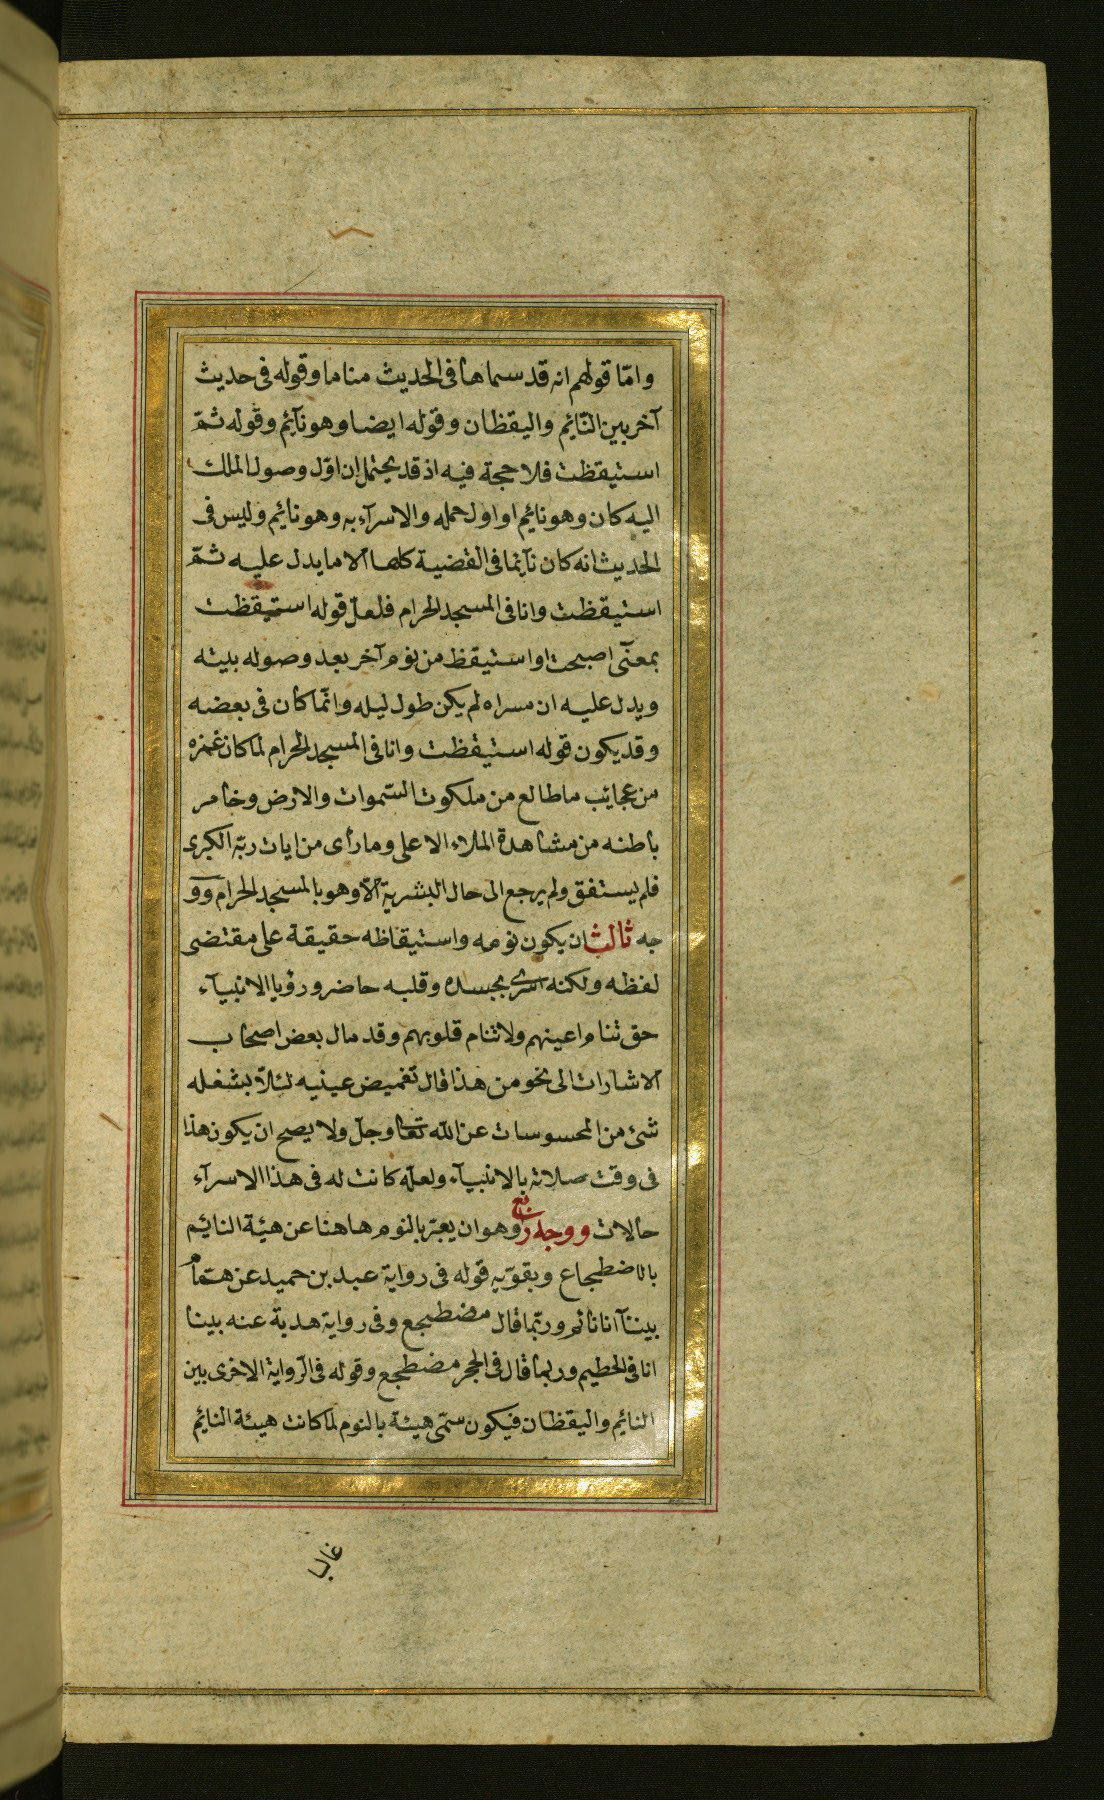 وامّا قولهم انه قد سماها فى الحديث مناما وقوله فى حديث
آخر بين النّائم واليقظان وقوله ايضا وهو نآئم وقوله ثمّ
استيقظت فلا حجة فيه اذ قد يحتمل ان اوّل وصول الملك
اليه كان وهو نائم او اول حمله والاسرآء به وهو نائم وليس فى
الحديث انه كان نآئما فى القضية كلها الا ما يدل عليه ثمّ
استيقظت وانا فى المسجد الحرام فلعلّ قوله استيقظت
بمعنى اصبحت او استيقظ من نوم آخر بعد وصوله بيته
ويدل عليه ان مسراه لم يكن طول ليله وانّما كان فى بعضه
وقد يكون قوله استيقظت وانا فى المسجد الحرام لما كان غمره
من عجايب ما طالع من ملكوت السّموات والارض وخامر
باطنه من مشاهدة الملاء الاعلى وما رأى من ايات ربّه الكبرى
فلم يستفق ولم يرجع الى حال البشرية الّا وهو بالمسجد الحرام وو
جه ثالث ان يكون نومه واستيقاظه حقيقة على مقتضى
لفظه ولكنه اسرى بجسده وقلبه حاضر ورؤيا الانبيآء
حق تنام اعينهم ولا تنام قلوبهم وقد مال بعض اصحاب
الاشارات الى نحو من هذا قال تغميض عينيه لئلّا يشغله
شئ من المحسوسات عن الله تعا وجلّ ولا يصح ان يكون هذا
فى وقت صلاته بالانبيآء ولعله كانت له فى هذا الاسرآء
حالات ووجه رابع وهو ان يعبّر بالنوم هاهنا عن هيئة النائم
بالاضطجاع ويقوّيه قوله فى رواية عبد بن حميد عن همّام
بيننآ انا نائم وربّما قال مضطجع وفى رواية هدبة عنه بينا
انا فى الحطيم وربما قال فى الحجر مضطجع وقوله فى الرّواية الاخرى بين
النائم واليقظان فيكون سمّى هيئة بالنوم لما كانت هيئة النائم
غالبا